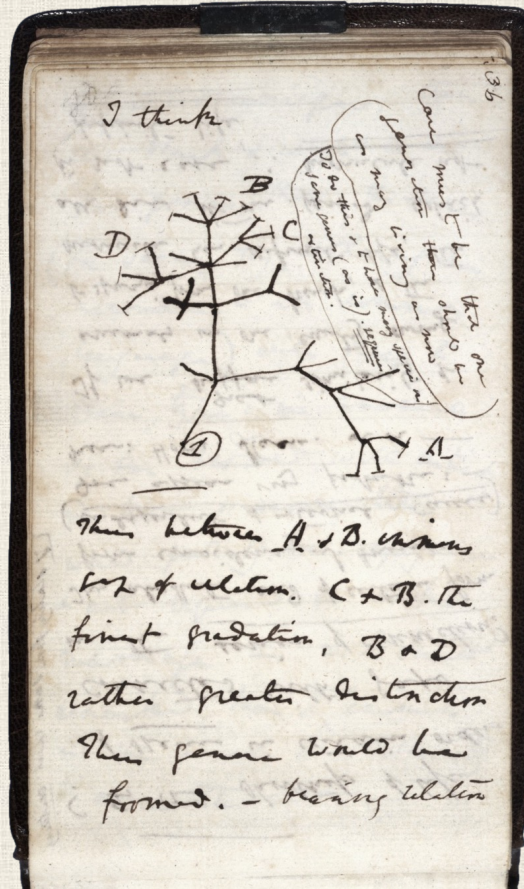 36
I think
Case must be that one
generation then should be
as many living as now
To do this & to have many species in
same genus (as is), requires
extinction.
B
C
D
A
1
Thus between A & B. immens
gap of relation. C & B. the
finest gradation, B & D
rather greater distinction
Thus genera would be
formed. — bearing relation